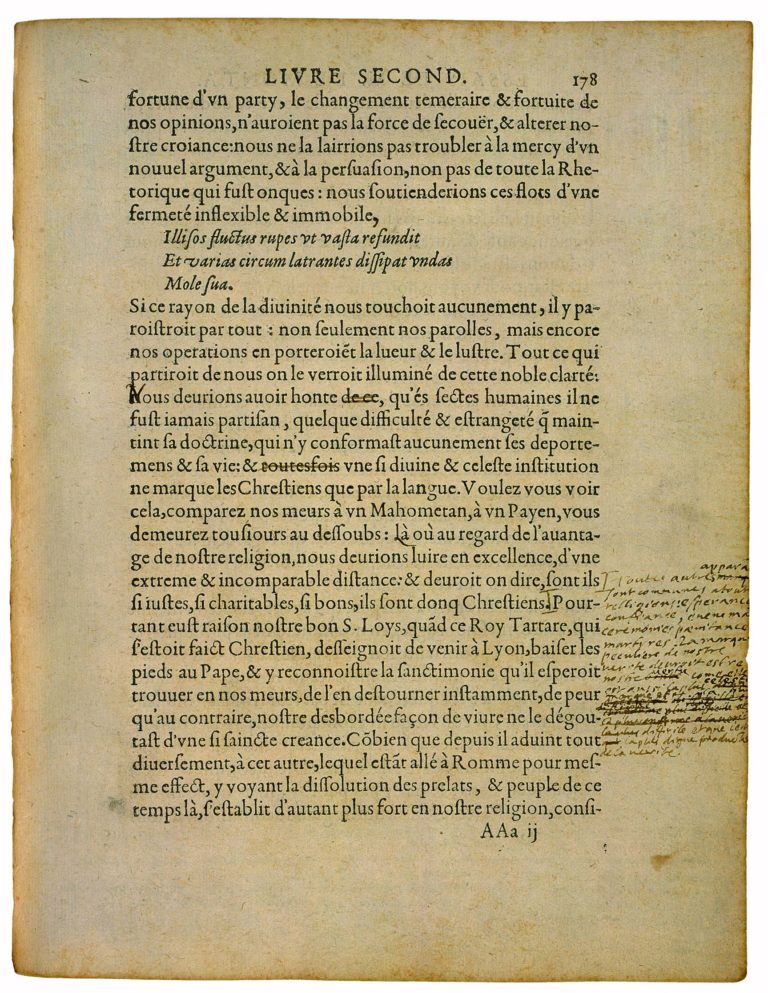 LIVRE SECOND. 178
fortune d'vn party, le changement temeraire & fortuite de
nos opinions, n'auroient pas la force de ſecouër, & alterer no-
ſtre croiance: nous ne la lairrions pas troubler à la mercy d'vn
nouuel argument, & à la perſuaſion, non pas de toute la Rhe-
torique qui fuſt onques: nous ſoutienderions ces flots d'vne
fermeté inflexible & immobile,
Illiſos fluctus rupes vt vaſta refundit
Et varias circum latrantes diſſipat vndas
Mole ſua.
Si ce rayon de la diuinité nous touchoit aucunement, il y pa-
roiſtroit par tout: non ſeulement nos parolles, mais encore
nos operations en porteroiẽt la lueur & le luſtre. Tout ce qui
partiroit de nous on le verroit illuminé de cette noble clarté:
Nous deurions auoir honte de ce, qu'és ſectes humaines il ne
fuſt iamais partiſan, quelque difficulté & eſtrangeté q̃ main-
tint ſa doctrine, qui n'y conformaſt aucunement ſes deporte-
mens & ſa vie: & toutesfois vne ſi diuine & celeſte inſtitution
ne marque les Chreſtiens que par la langue. Voulez vous voir
cela, comparez nos meurs à vn Mahometan, à vn Payen, vous
demeurez touſiours au deſſoubs: là où au regard de l'auanta-
ge de noſtre religion, nous deurions luire en excellence, d'vne
extreme & incomparable diſtance: & deuroit on dire, ſont ils
ſi iuſtes, ſi charitables, ſi bons, ils ſont donq Chreſtiens. Pour-
tant euſt raiſon noſtre bon S. Loys, quãd ce Roy Tartare, qui
s'eſtoit faict Chreſtien, deſſeignoit de venir à Lyon, baiſer les
pieds au Pape, & y reconnoiſtre la ſanctimonie qu'il eſperoit
trouuer en nos meurs, de l'en deſtourner inſtamment, de peur
qu'au contraire, noſtre desbordée façon de viure ne le dégou-
taſt d'vne ſi ſaincte creance. Cõbien que depuis il aduint tout
diuerſement, à cet autre, lequel eſtãt allé à Romme pour meſ-
me effect, y voyant la diſſolution des prelats, & peuple de ce
temps là, s'eſtablit d'autant plus fort en noſtre religion, conſi-
AAa ij
toutes autres
sont communes a
religions esperance
confiance
ceremonies pœnitance
martires. La marqu
peculiere de nostre
verite deuroit estre
nostre
difficile et que
la plus digne
de la verité.